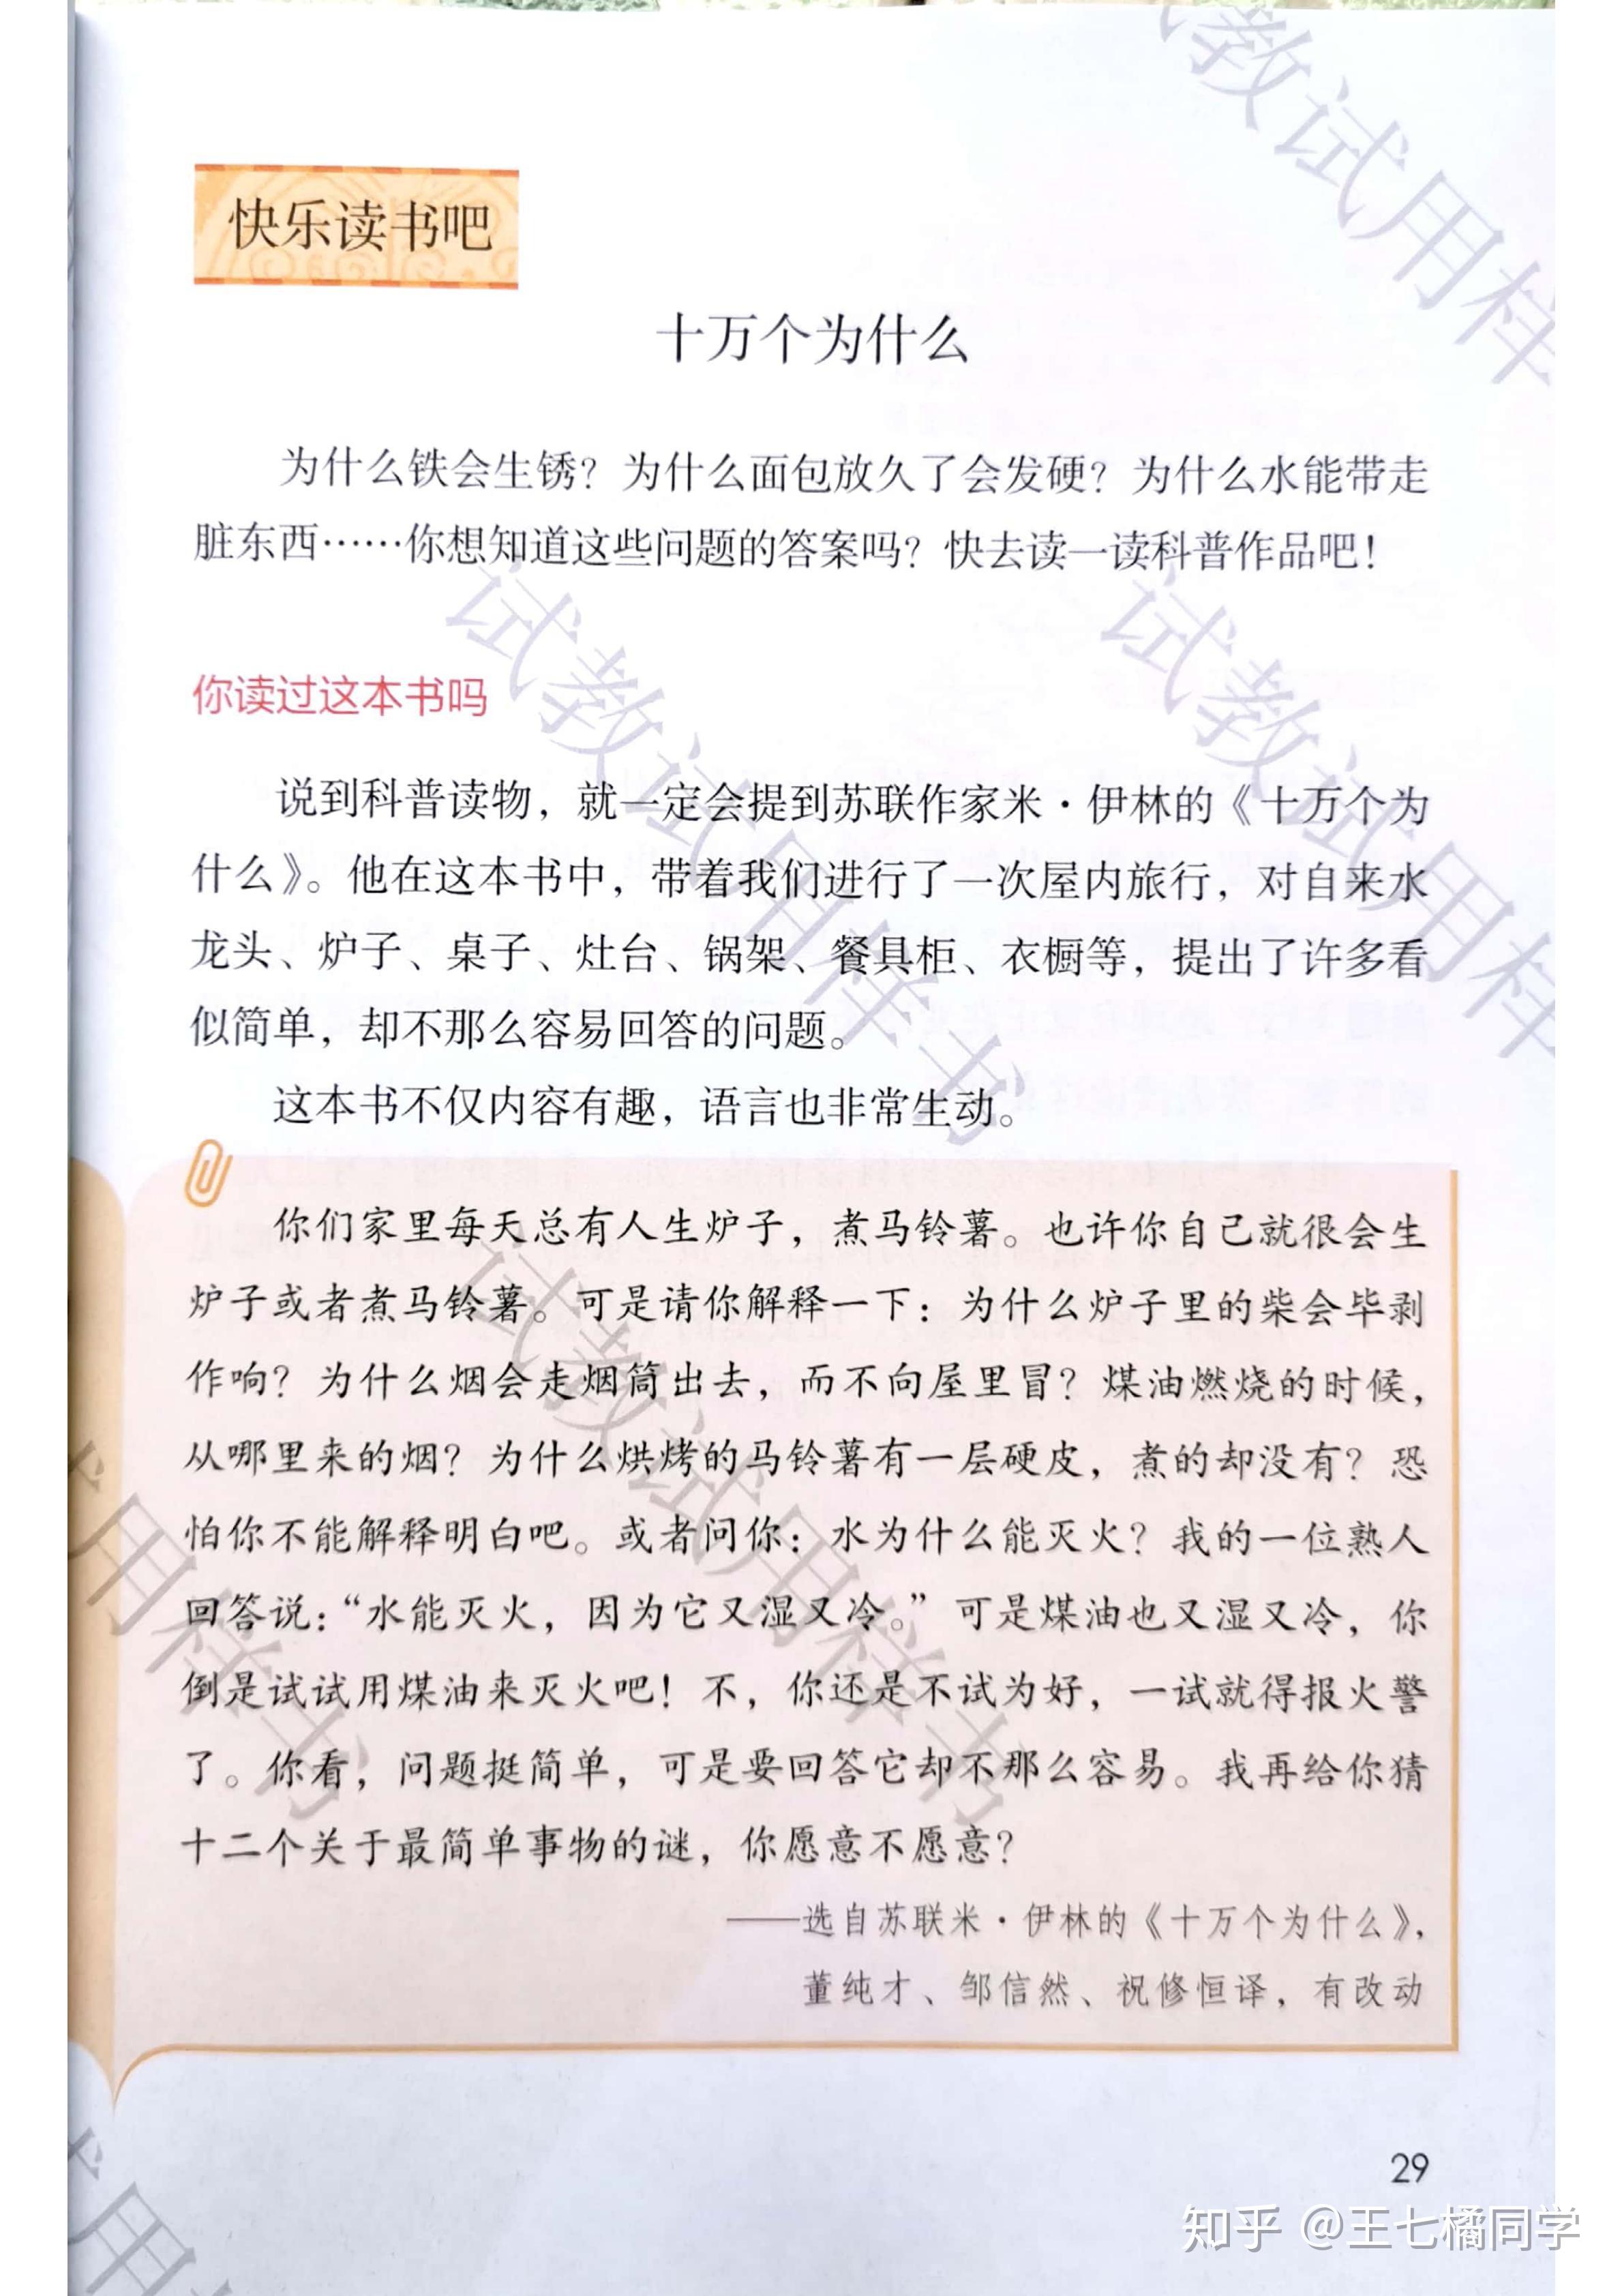 快乐读书吧
十万个为什么
为什么铁会生锈？为什么面包放久了会发硬？为什么水能带走
脏东西……你想知道这些问题的答案吗？快去读一读科普作品吧！
你读过这本书吗
说到科普读物，就一定会提到苏联作家米·伊林的《十万个为
什么》。他在这本书中，带着我们进行了一次屋内旅行，对自来水
龙头、炉子、桌子、灶台、锅架、餐具柜、衣橱等，提出了许多看
似简单，却不那么容易回答的问题。
这本书不仅内容有趣，语言也非常生动。
你们家里每天总有人生炉子，煮马铃薯。也许你自己就很会生
炉子或者煮马铃薯。可是请你解释一下：为什么炉子里的柴会毕剥
作响？为什么烟会走烟筒出去，而不向屋里冒？煤油燃烧的时候，
从哪里来的烟？为什么烘烤的马铃薯有一层硬皮，煮的却没有？恐
怕你不能解释明白吧。或者问你：水为什么能灭火？我的一位熟人
回答说：“水能灭火，因为它又湿又冷。”可是煤油也又湿又冷，你
倒是试试用煤油来灭火吧！不，你还是不试为好，一试就得报火警
了。你看，问题挺简单，可是要回答它却不那么容易。我再给你猜
十二个关于最简单事物的谜，你愿意不愿意？
——选自苏联米·伊林的《十万个为什么》，
董纯才、邹信然、祝修恒译，有改动
29
知乎 @王七橘同学
试教试用样
试教试用样书
试教试用样
试教试用样书
试用样书
试用